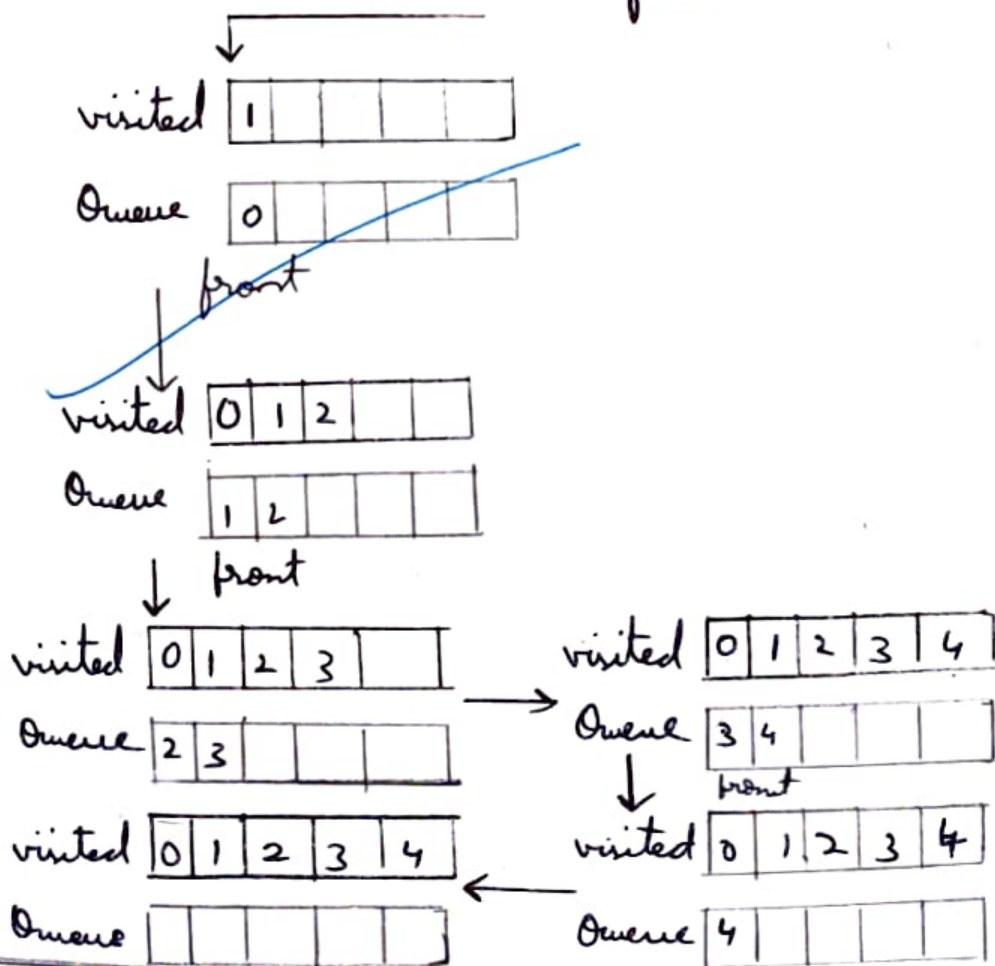 visited 1
Queue 0
front
visited 0 1 2
Queue 1 2
front
visited 0 1 2 3
Queue 2 3
visited 0 1 2 3 4
Queue 3 4
front
visited 0 1 2 3 4
Queue 4
visited 0 1 2 3 4
Queue